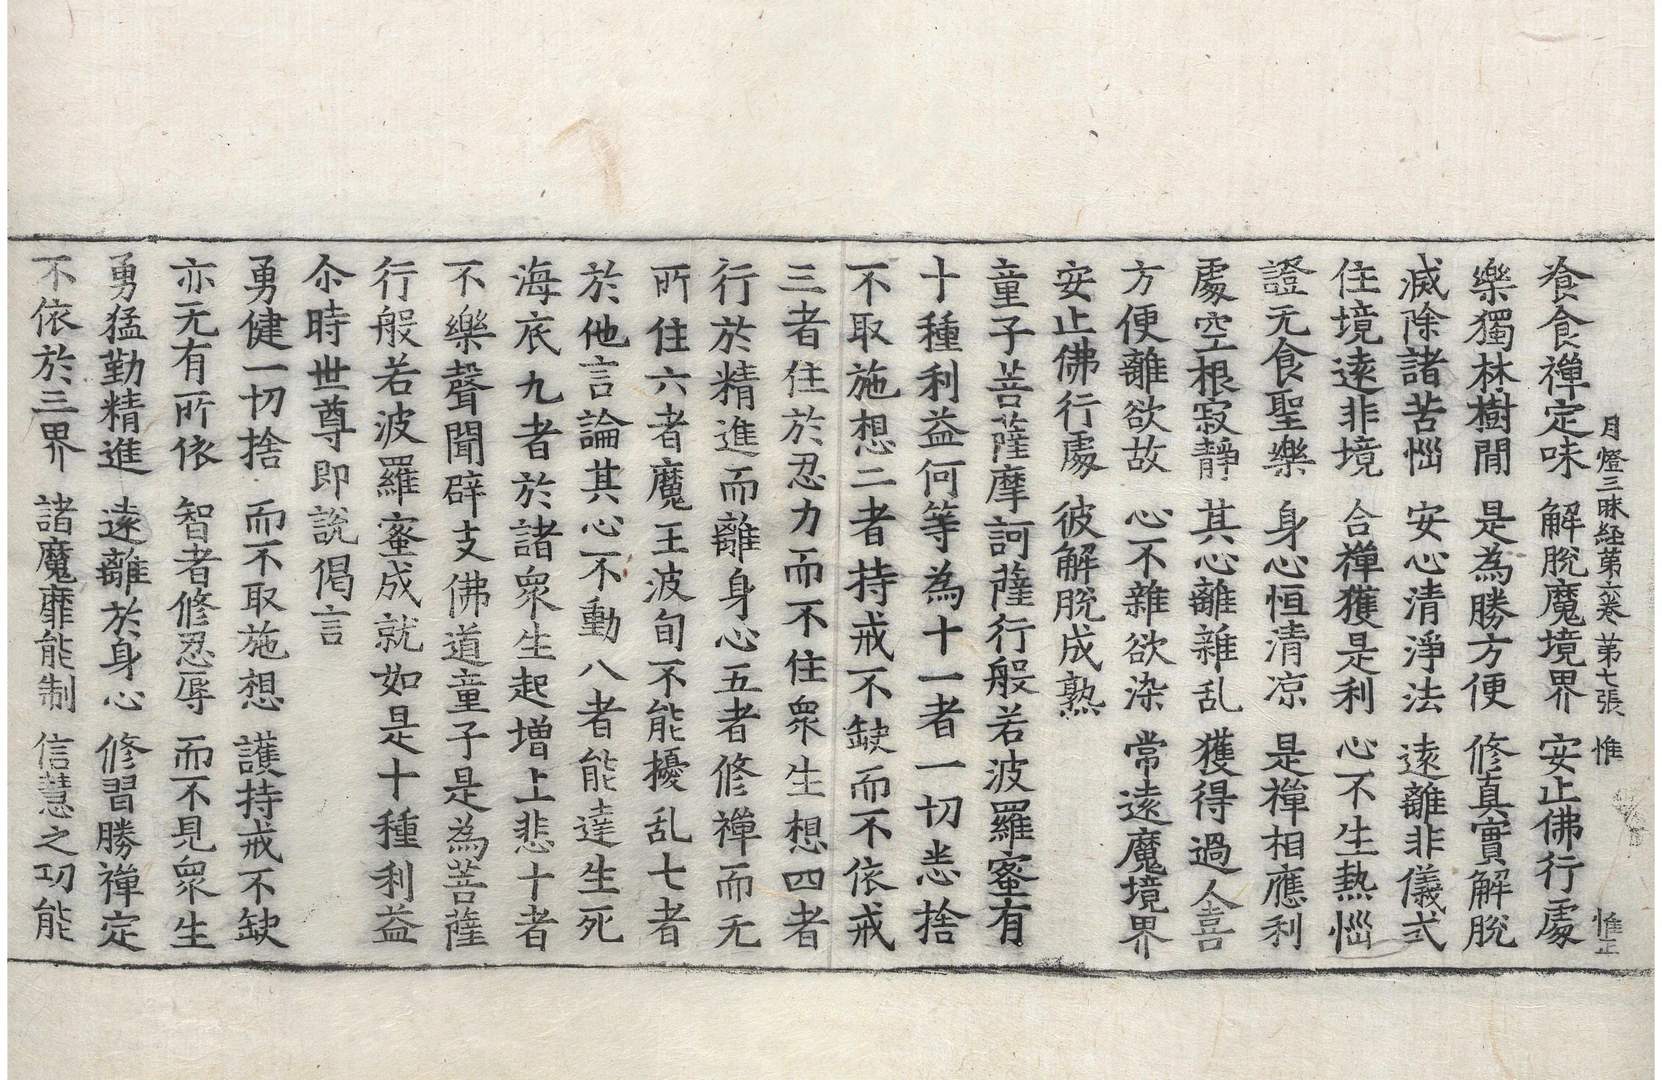 月燈三昧経第六巻 第七張 惟 惟正
飡食禪定味 解脫魔境界 安止佛行處
樂獨林樹閒 是為勝方便 修真實解脫
滅除諸苦惱 安心清淨法 遠離非儀式
住境遠非境 合禪獲是利 心不生熱惱
證无食聖樂 身心恒清凉 是禪相應利
處空根寂靜 其心離雜乱 獲得過人喜
方便離欲故 心不雜欲染 常遠魔境界
安止佛行處 彼解脫成熟
童子菩薩摩訶薩行般若波羅蜜有
十種利益何等為十一者一切悉捨
不取施想二者持戒不缺而不依戒
三者住於忍力而不住衆生想四者
行於精進而離身心五者修禪而无
所住六者魔王波旬不能擾乱七者
於他言論其心不動八者能達生死
海底九者於諸衆生起增上悲十者
不樂聲聞辟支佛道童子是為菩薩
行般若波羅蜜成就如是十種利益
尒時世尊即說偈言
勇健一切捨 而不取施想 護持戒不缺
亦无有所依 智者修忍辱 而不見衆生
勇猛勤精進 遠離於身心 修習勝禪定
不依於三界 諸魔靡能制 信慧之功能